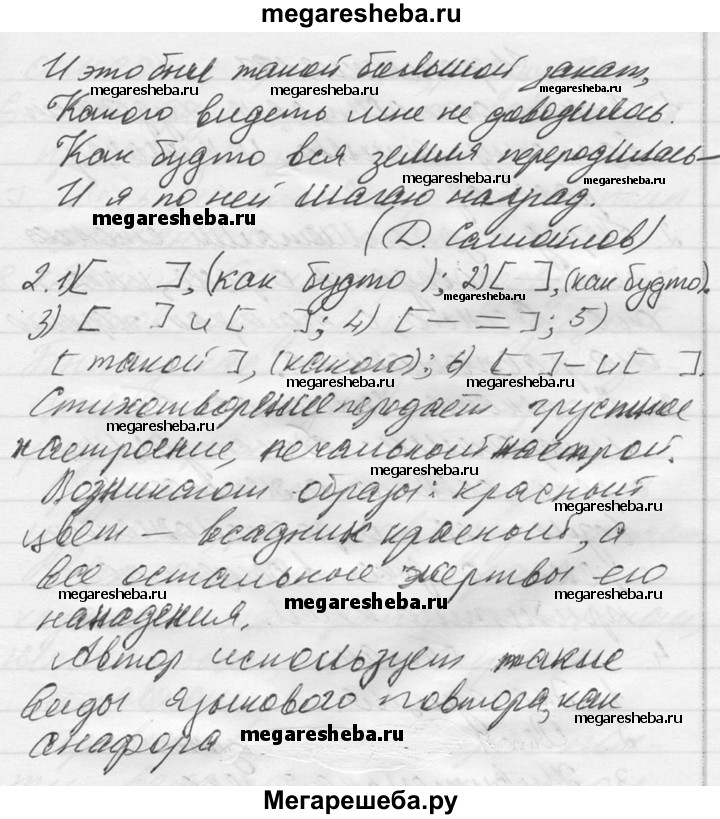 megaresheba.ru
И это был такой большой закат,
megaresheba.ru megaresheba.ru megaresheba.ru
Какого видеть мне не доводилось.
megaresheba.ru
Как будто вся земля переродилась —
megaresheba.ru megaresheba.ru
И я по ней шагаю наугад.
megaresheba.ru
(Д. Самойлов)
2. 1) [ ], (как будто ); 2) [ ], (как будто).
megaresheba.ru
3) [ ] и [ ]; 4) [ — = ]; 5)
[ такой ], (какого); 6) [ ] – и [ ].
megaresheba.ru megaresheba.ru
Стихотворение передаёт грустное
megaresheba.ru
настроение, печальный настрой.
megaresheba.ru
Возникают образы: красный
megaresheba.ru
цвет — всадник красный, а
все остальные жертвы его
megaresheba.ru megaresheba.ru megaresheba.ru
нападения.
Автор использует такие
виды языкового повтора, как
megaresheba.ru
анафора
megaresheba.ru
Мегарешеба.ру